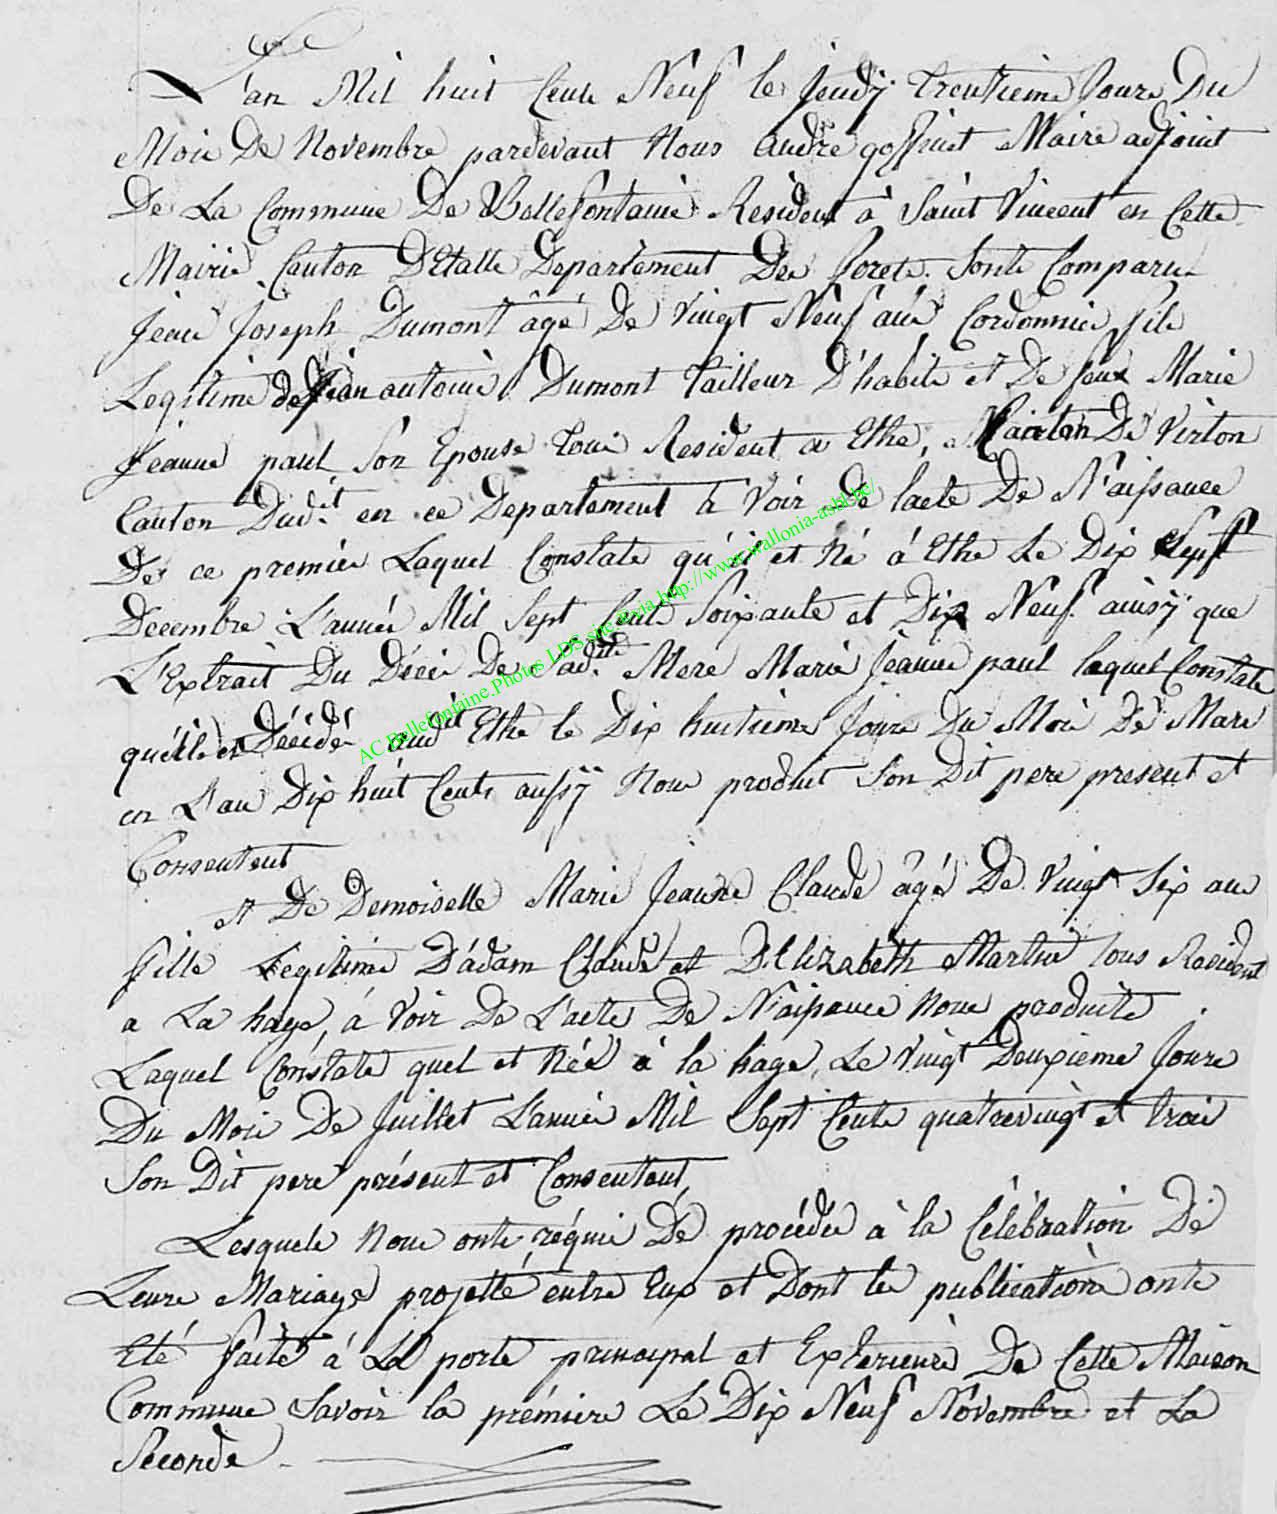 L'an Mil huit Cents Neuf le Jeudÿ trentieme Jours Du
Mois De Novembre pardevant Nous André goffinet Maire adjoint
De La Commune De Bellefontaine Resident à Saint Vincent en Cette
Mairie Canton D'Etalle Departement Des Forets Sonts Comparus
Jean Joseph Dumont âgé De Vingt Neuf ans Cordonnier fils
Legitime de Jean antoine Dumont tailleur D'habits et De feux Marie
Jeanne paul Son Epouse tous Resident a Ethe, De Virton
Canton Dud.it en ce Departement à Voir De lacte De Naissance
De ce premier Laquel Constate qu'il est Né à Ethe Le Dix Sept
Decembre L'année Mil Sept Cents Soixante et Dix Neuf ainsÿ que
L'Extrait Du Décès De Sad.ite Mere Marie Jeanne paul laquel Constate
quélle est Décédé aud.it Ethe le Dix huitieme Jours Du Mois De Mars
en L'an Dix huit Cents aussÿ Nous produit Son Dit pere present et
Consentent
et De Demoiselle Marie Jeanne Claude âgé De Vingt Six ans
fille Legitime D'adam Claude et D'Elizabeth Martin tous Resident
a La hage, à Voir De L'acte De Naissance Nous produite
Laquel Constate quel est Née à la hage, Le Vingt Deuxieme Jours
Du Mois De Juillet L'année Mil Sept Cents quatrevingt et trois
Son Dit pere présent et Consentent,
Lesquels Nous onts réquis De procéder à la Célébration De
Leurs Mariage projetté entre Eux et Dont les publications onts
Eté faite à La porte principal et Exterieure De Cette Maison
Commune Savoir la prémiere Le Dix Neuf Novembre et La
Seconde
AC Bellefontaine.Photos LDS site & via http://www.wallonia-asbl.be/